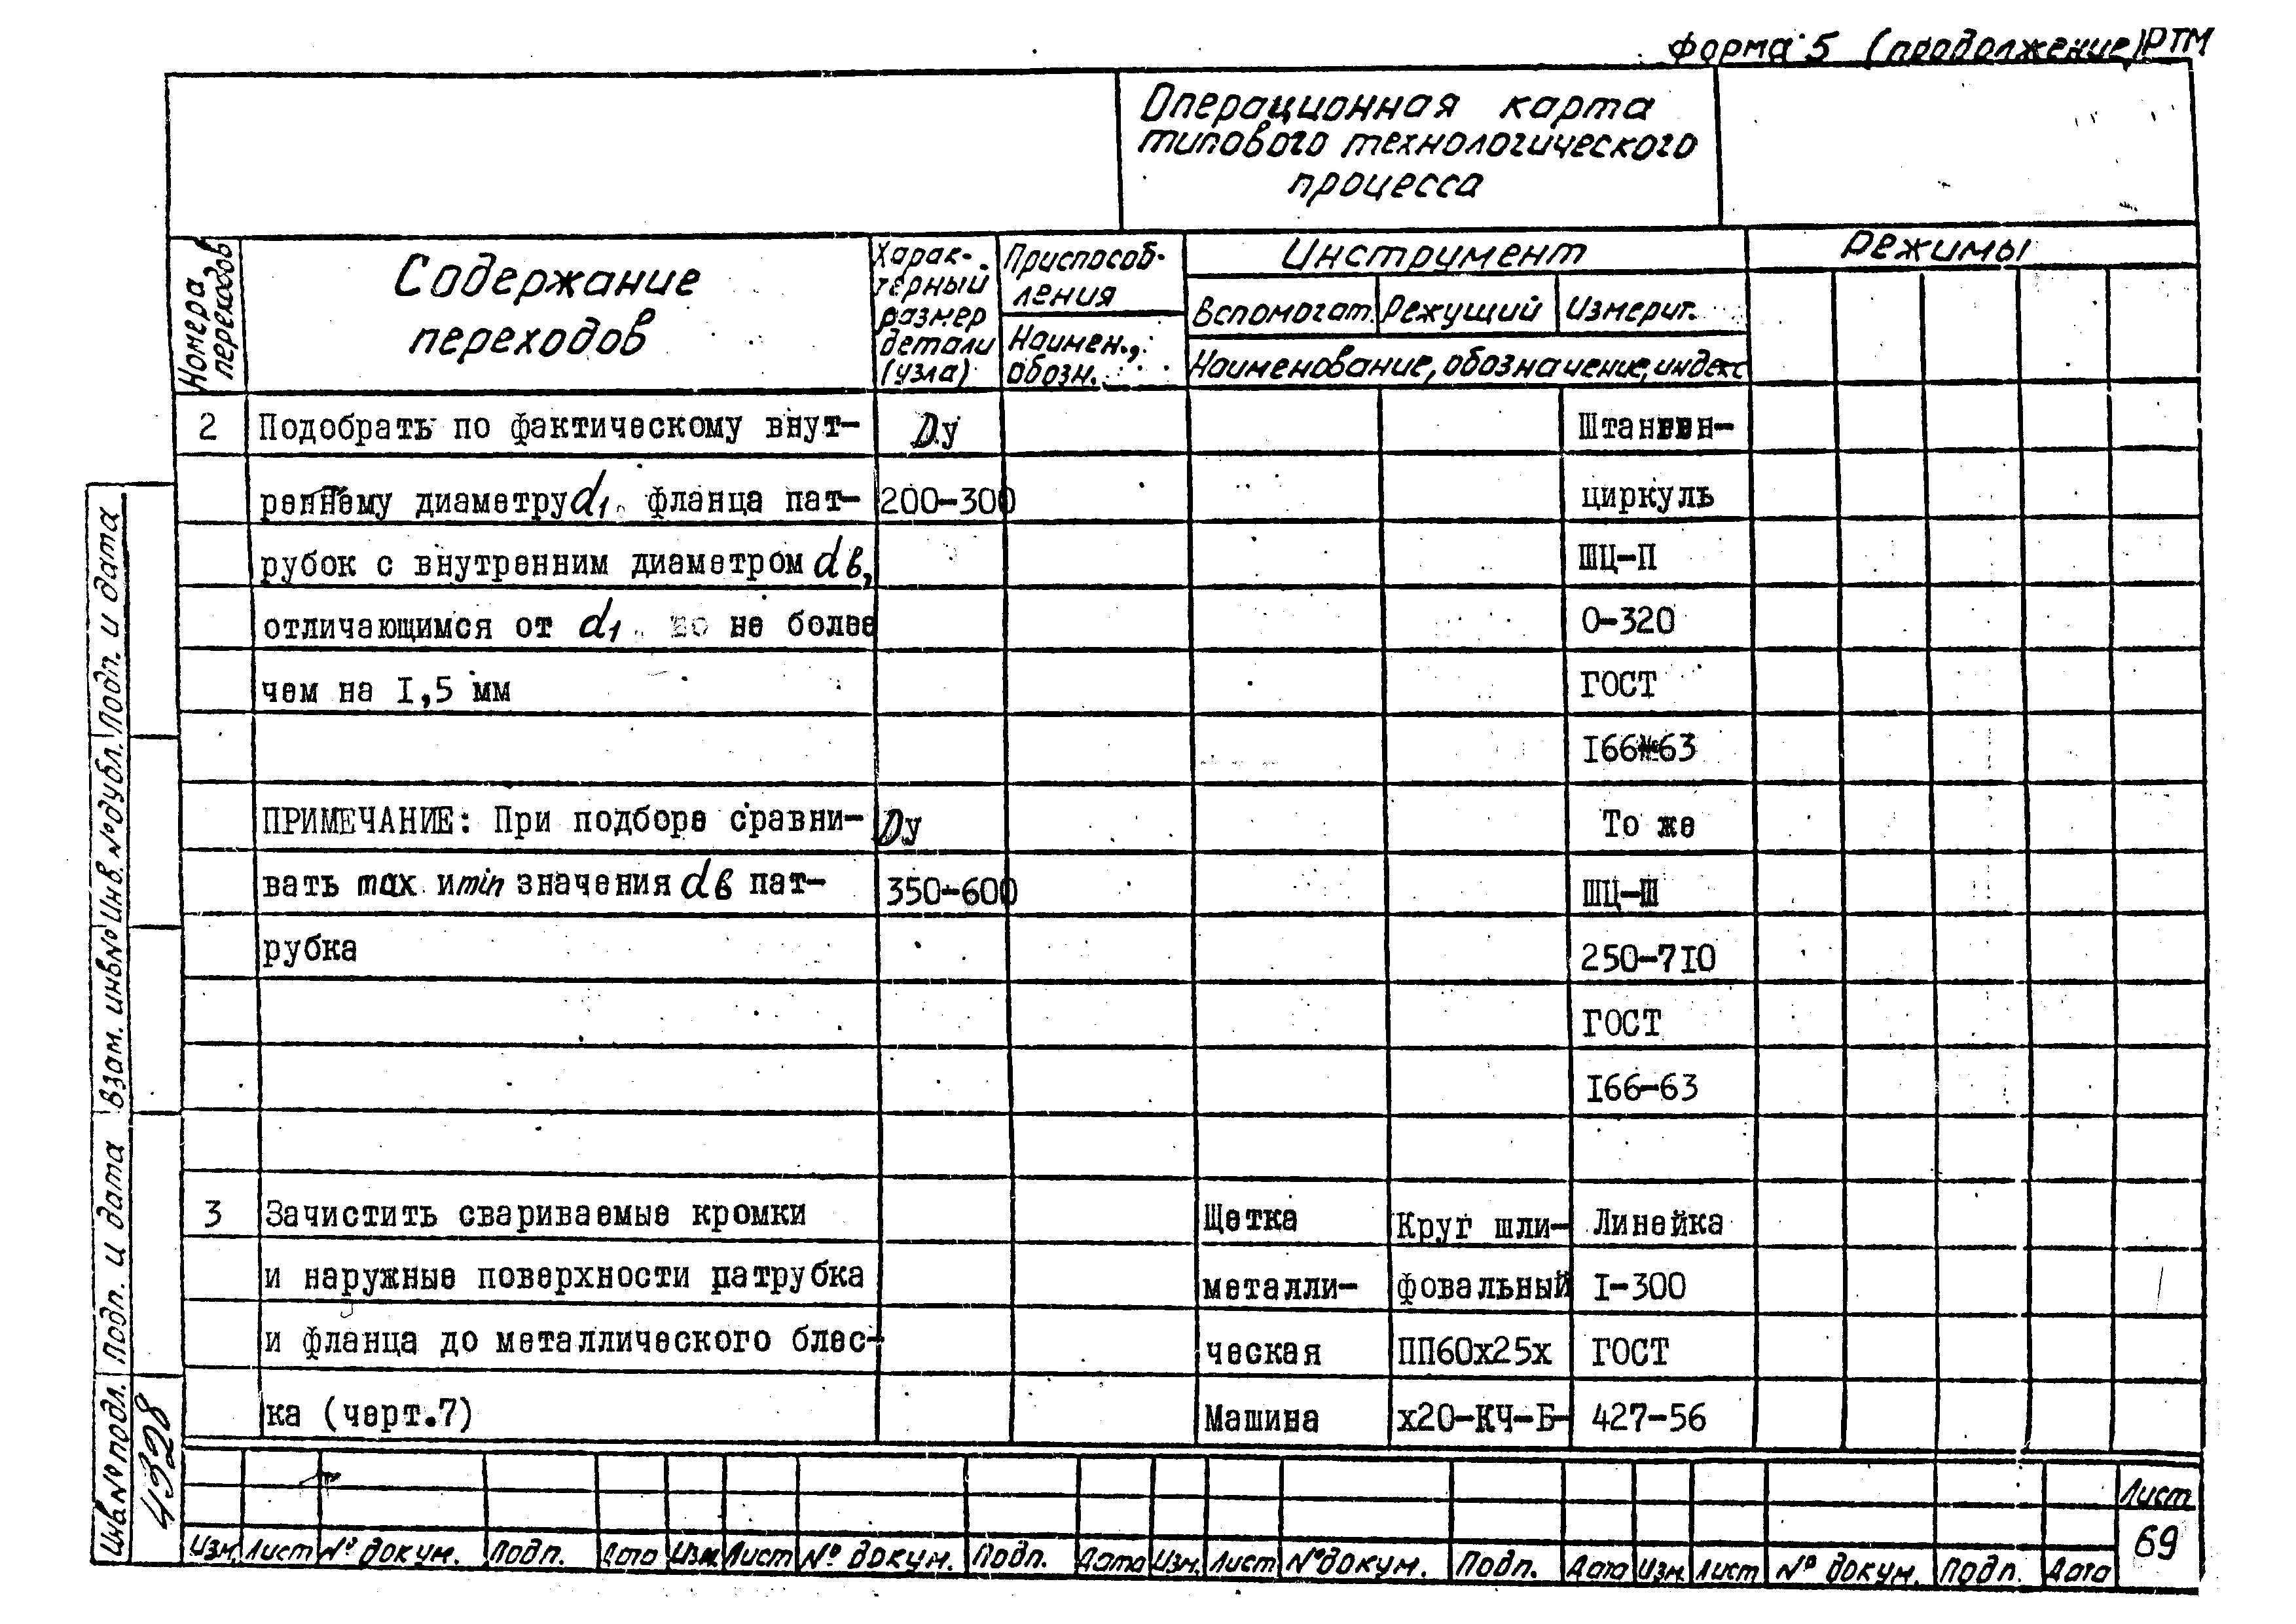 Форма 5 (продолжение) РТМ
Операционная карта
типового технологического
процесса
Номера
переходов
Содержание
переходов
Харак-
терный
размер
детали
(узла)
Приспособ-
ления
Наимен.,
обозн.
Инструмент
Вспомогат. Режущий Измерит.
Наименование, обозначение, индекс
Режимы
2 Подобрать по фактическому внут- Dу Штанген-
реннему диаметру d1 фланца пат- 200-300 циркуль
рубок с внутренним диаметром dв, ШЦ-П
отличающимся от d1 не более 0-320
чем на I,5 мм ГОСТ
I66-63
ПРИМЕЧАНИЕ: При подборе сравни- Dу То же
вать max и min значения dв пат- 350-600 ШЦ-Ш
рубка 250-7I0
ГОСТ
I66-63
3 Зачистить свариваемые кромки Щетка Круг шли- Линейка
и наружные поверхности патрубка металли- фовальный I-300
и фланца до металлического блес- ческая ПП60х25х ГОСТ
ка (черт.7) Машина х20-КЧ-Б- 427-56
Изм. Лист № докум. Подп. Дата Изм. Лист № докум. Подп. Дата Изм. Лист № докум. Подп. Дата Изм. Лист № докум. Подп. Дата
Лист
69
Инв № подл. Подп. и дата Взам. инв № Инв. № дубл. Подп. и дата
41398